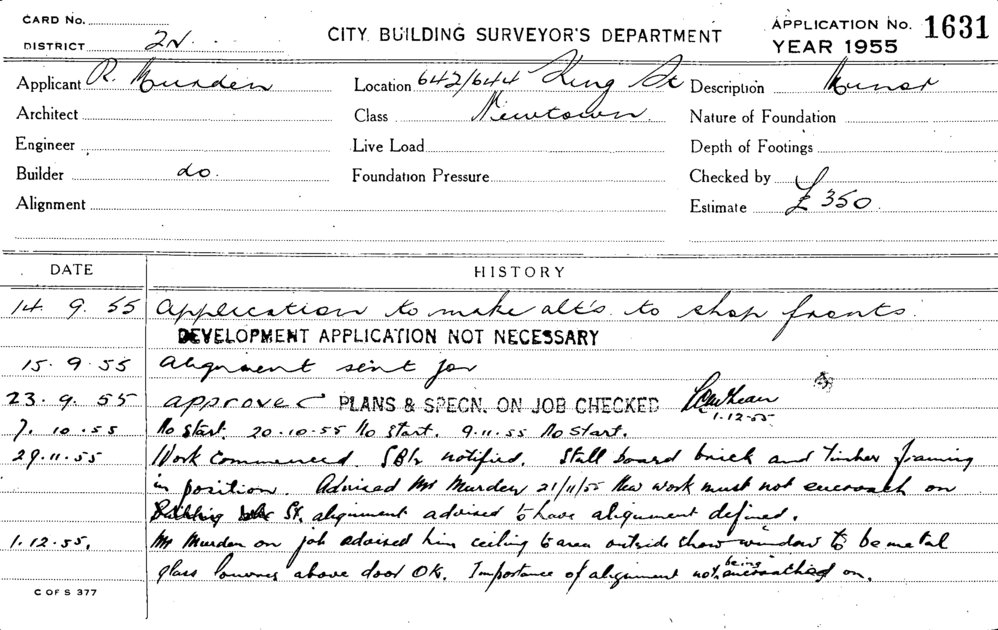 CARD No.
DISTRICT 2N.
CITY BUILDING SURVEYOR'S DEPARTMENT
APPLICATION No. 1631
YEAR 1955
Applicant R. Murden Location 642/644 King St Description Minor
Architect Class Newtown Nature of Foundation
Engineer Live Load Depth of Footings
Builder do. Foundation Pressure Checked by
Alignment Estimate £350
DATE HISTORY
14. 9. 55 Application to make alt's to shop fronts.
DEVELOPMENT APPLICATION NOT NECESSARY
15. 9. 55 Alignment sent for
23. 9. 55 approved PLANS & SPECN. ON JOB CHECKED
1.12.55
7. 10. 55 No start. 20.10.55 No start. 9.11.55 No start.
29.11.55 Work commenced. notified. Stall board brick and timber framing
in position. Advised Mr Murden 21/11/55 New work must not encroach on
St. alignment advised to have alignment defined.
1.12.55. Mr Murden on job advised him ceiling to area outside show window to be metal
glass louvres above door OK. Importance of alignment not being encroached on.
C OF S 377